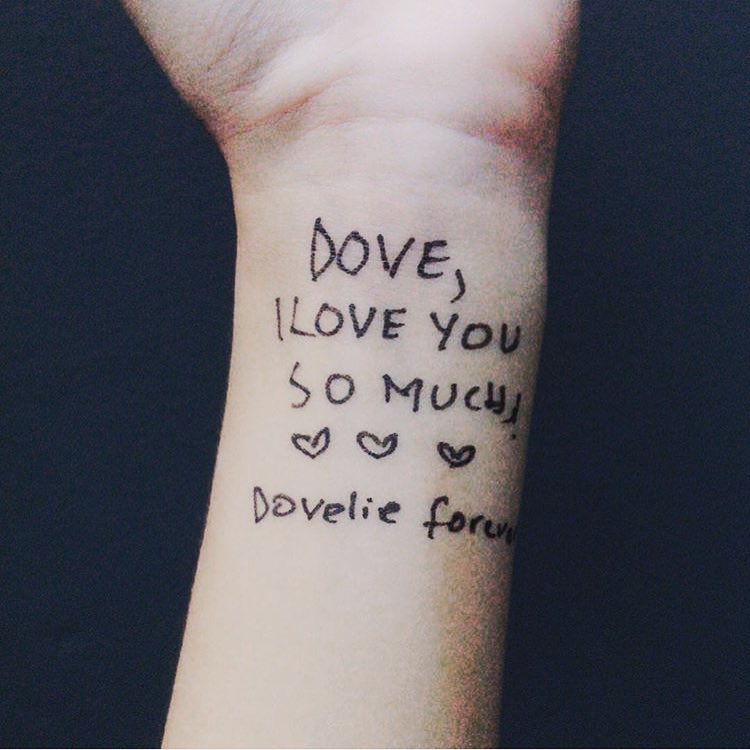 DOVE,
I LOVE YOU
SO MUCH!
Dovelie